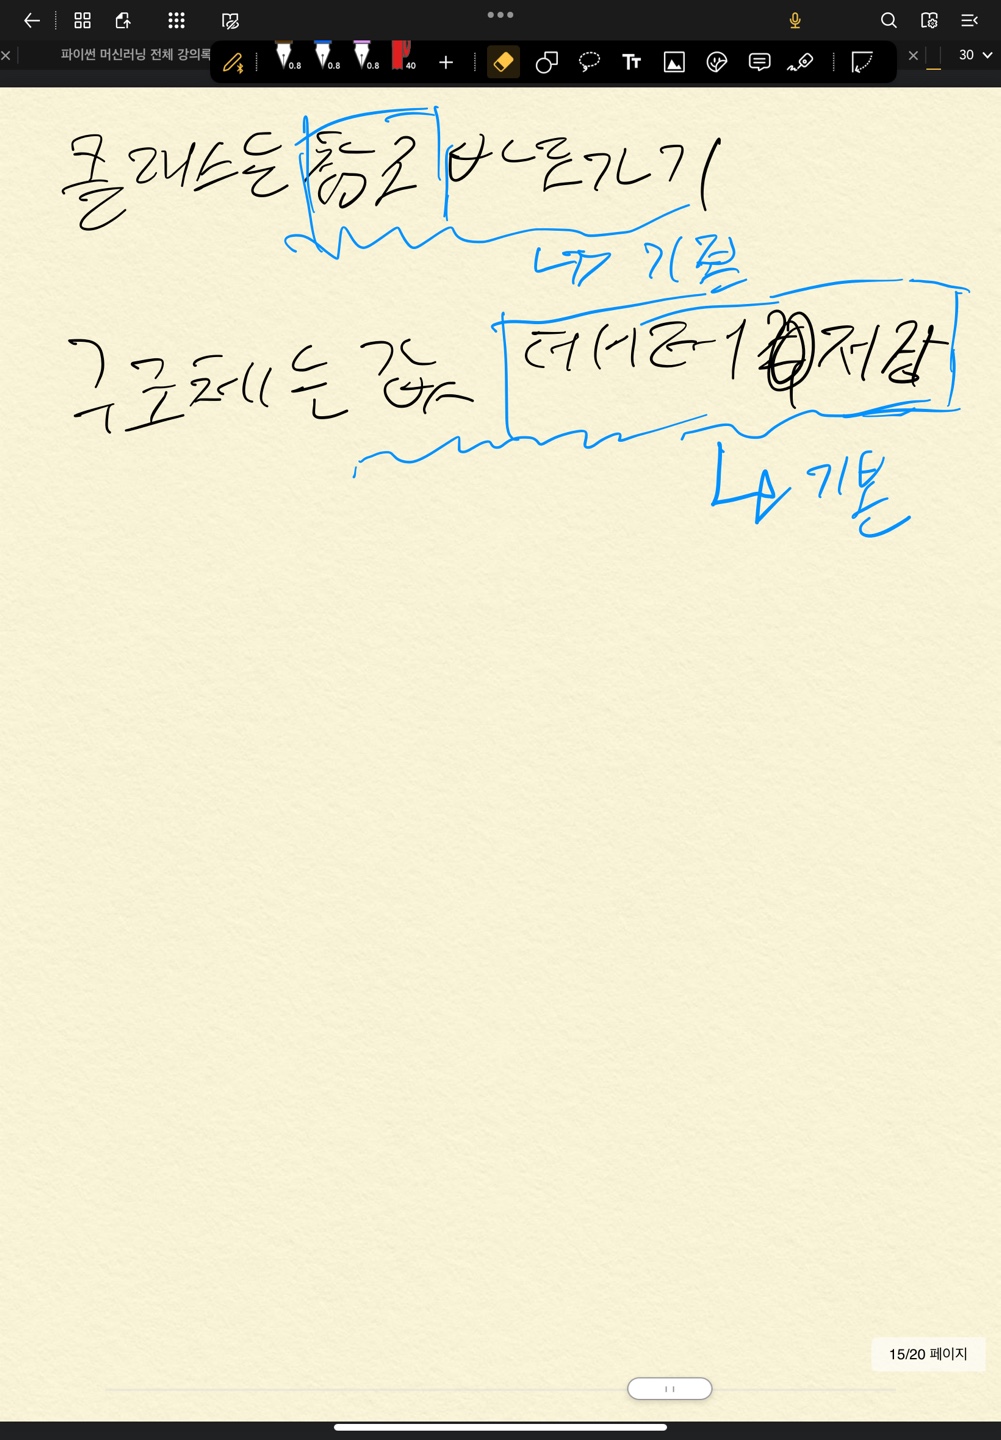 파이썬 머신러닝 전체 강의록
0.8 0.8 0.8 40
Tт
30
클래스는 참조 바로가기
↳ 기본
구조체는 값 데이터 저장
↳ 기본
15/20 페이지